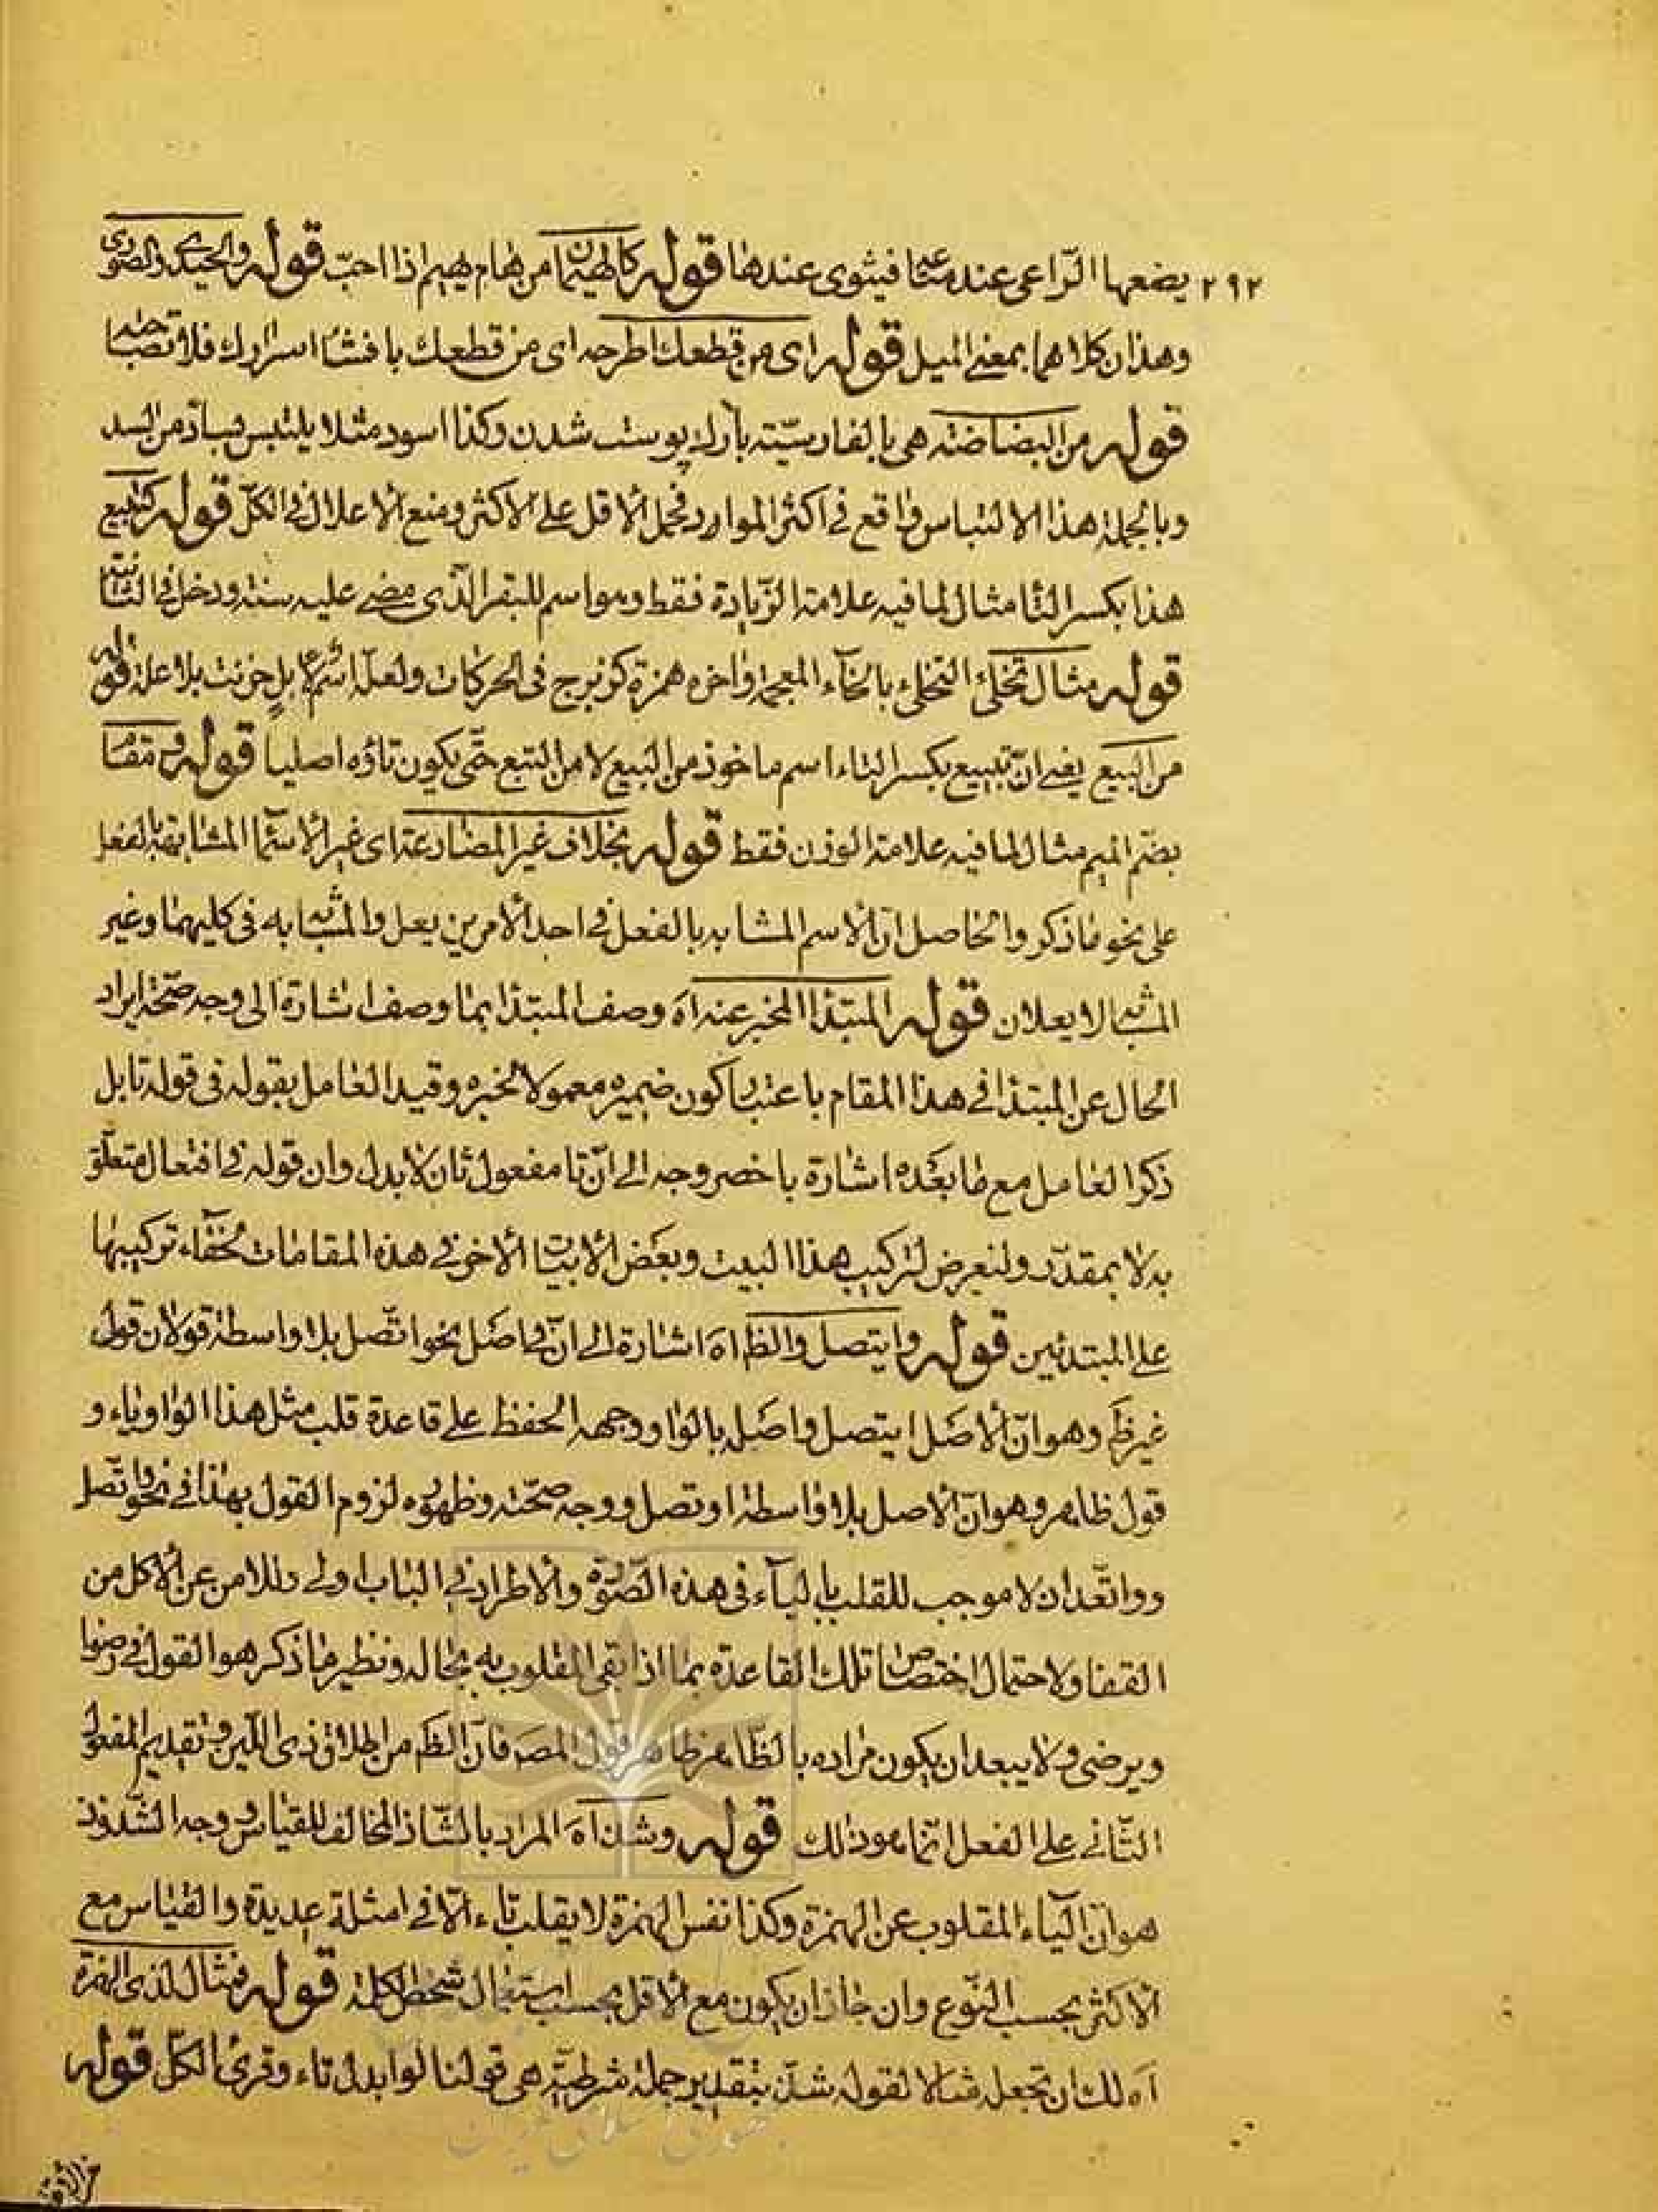 ٢٩٢ يضعها الرّاعى عند متاعه فيثوى عندها قوله كالهيمان من هام يهيم اذا احبّ قوله والحيدى والصورى
وهذان كلاهما بمعنى الميل قوله اى من قطعك اطرحه اى من قطعك بافشاء اسرارك فلا تصاحبه
قوله من البضاضته هى بالفارسيّته نازك پوست شدن وكذا اسود مثلا يلتبس بسادّ من السد
وبالجملة هذا الالتباس واقع فى اكثر الموارد فحمل الاقل على الاكثر ومنع الاعلال فى الكلّ قوله كتبيع
هذا بكسر التا مثال لما فيه علامة الزّيادة فقط وهو اسم للبقر الّذى مضى عليه سنة ودخل فى الثانية
قوله مثال تحلئ التخلئ بالخآء المعجمة واخره همزة كزبرج فى الحركات ولعلّه اسم بلا علة قوله
من البيع يعنى انّ تبيع بكسر التاء اسم ماخوذ من البيع لا من التبع حتّى يكون تاؤه اصليا قوله ومقا
بضمّ الميم مثال لما فيه علامة الوزن فقط قوله بخلاف غير المضارعة اى غير الاسما المشابهة بالفعل
على نحو ما ذكر والحاصل انّ الاسم المشابه بالفعل فى احد الامرين يعل والمشابه به فى كليهما وغير
المشابه لا يعلان قوله المبتدا المخبر عنه اه وصف المبتدا بما وصف اشارة الى وجه صحّة ايراد
الحال عن المبتدا فى هذا المقام باعتبار كون ضميره معمولا لخبره وقيد العامل بقوله فى قوله تابل
ذكر العامل مع ما بعده اشارة باخصر وجه الى انّ تا مفعول ثان لابدل وان قوله فى افتعال متعلّق
به لا بمقدّر ولنعرض لتركيب هذا البيت وبعض الابيات الاخر فى هذه المقامات لخفآء تركيبها
على المبتدئين قوله وايتصل والظ اه اشارة الى انّ فى اصل نحو اتّصل بلا واسطة قولان قول
غير ظ وهو انّ الاصل ايتصل واصل بالواو وجهه الحفظ على قاعدة قلب مثل هذا الواو ياء و
قول ظاهر وهو انّ الاصل بلا واسطة اوتصل ووجه صحّته وظهوره لزوم القول بهذا فى نحو واتّصل
وواتّعد ان لا موجب للقلب بالياء فى هذه الصّورة والاطراد فى الباب اولى وللامن عن الاكل من
القفا ولاحتمال اختصاص تلك القاعدة بما اذا بقى المقلوب به بحاله ونظير ما ذكر هو القول فى رضوا
ويرضى ولا يبعد ان يكون مراده بالظّاهر ظاهر قول المصر فانّ الظم من اطلاق ذى اللّين وتقديم المفعول
الثّانى على الفعل انّما هو ذلك قوله وشذ اه المراد بالشّاذ المخالف للقياس ووجه الشّذوذ
هو انّ اليآء المقلوب عن الهمزة وكذا نفس الهمزة لا يقلب تاء الّا فى امثلة عديدة والقياس مع
الاكثر بحسب النّوع وان جاز ان يكون مع الاقل بحسب استعمال شخص الكلمة قوله مثال لذى الهمزة
اه لك ان تجعل مثالا لقوله شذّ بتقدير جملة شرطيّة هى قولنا لو ابدل تاء وقرئ الكلّ قوله